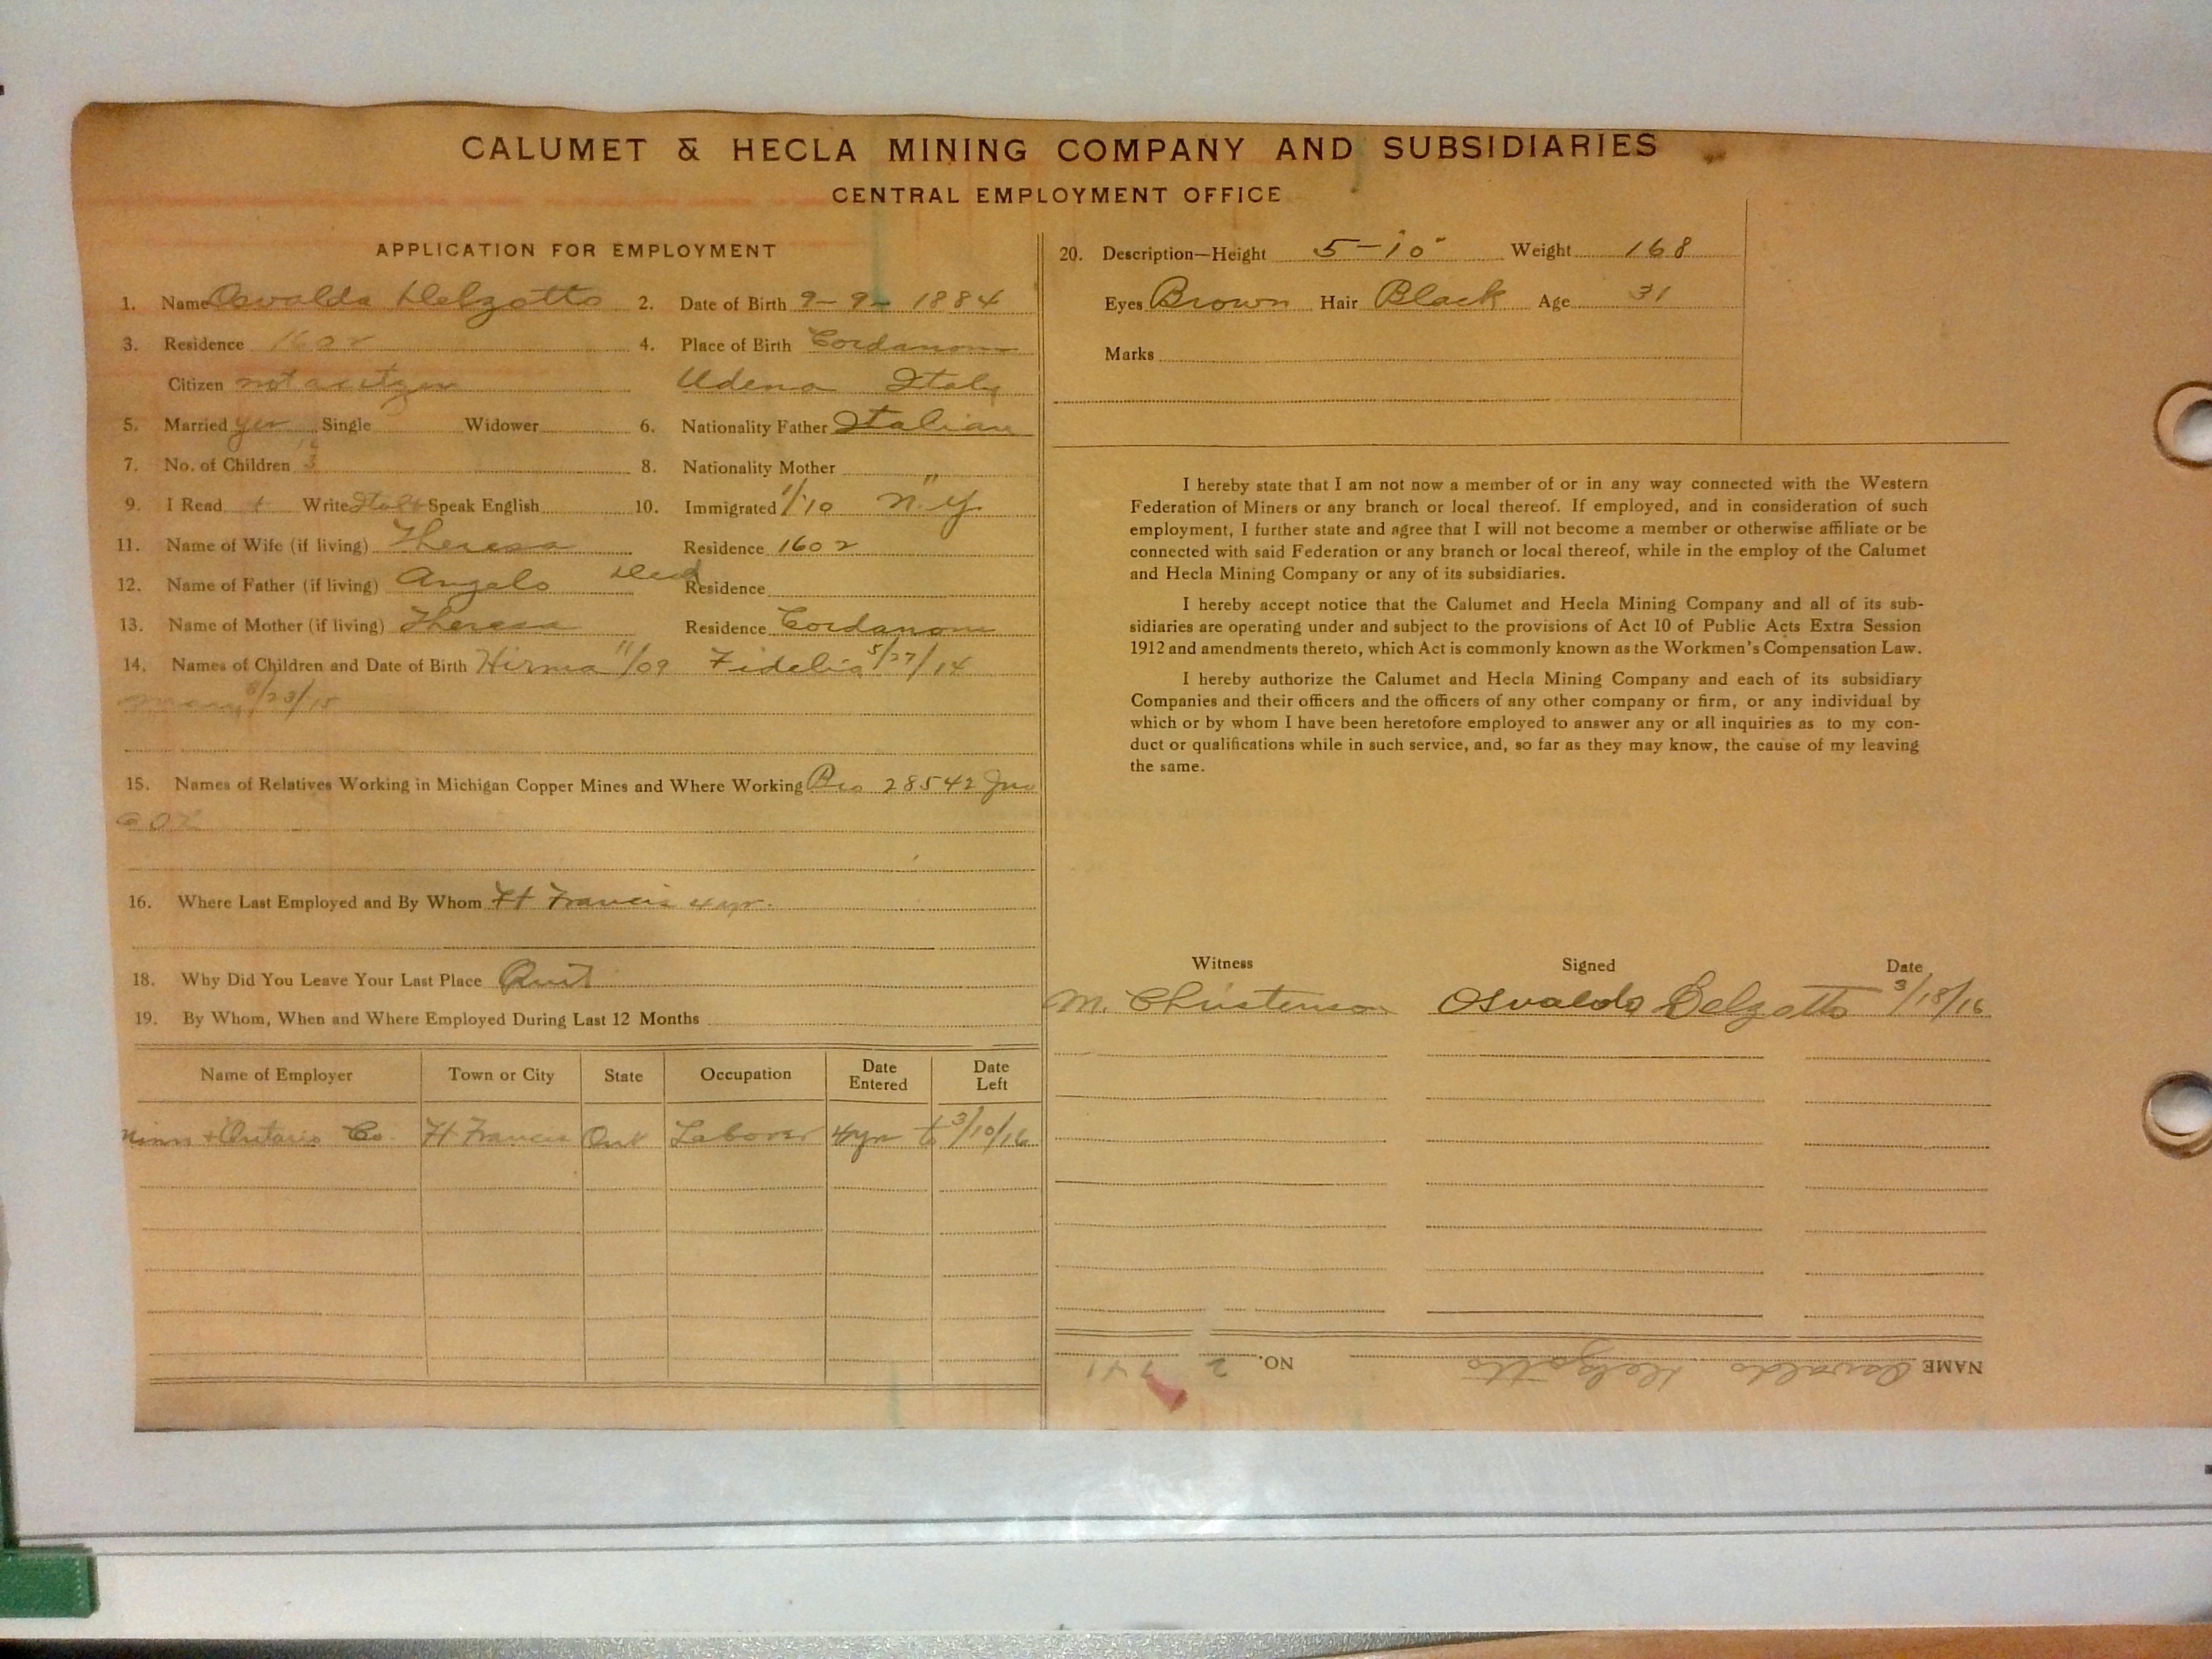 CALUMET & HECLA MINING COMPANY AND SUBSIDIARIES
CENTRAL EMPLOYMENT OFFICE
APPLICATION FOR EMPLOYMENT
1. Name Osvaldo Delzotto 2. Date of Birth 9-9-1884
3. Residence 1602 4. Place of Birth Cordanons
Citizen not a citzen Udena Italy
5. Married yes Single Widower 6. Nationality Father Italian
7. No. of Children 3 8. Nationality Mother "
9. I Read + Write Ital Speak English 10. Immigrated 1/10 N.Y.
11. Name of Wife (if living) Theresa Residence 1602
12. Name of Father (if living) Angelo Dead Residence
13. Name of Mother (if living) Theresa Residence Cordanons
14. Names of Children and Date of Birth Hirma 11/09 Fidelia 5/27/14
8/23/15
15. Names of Relatives Working in Michigan Copper Mines and Where Working Bro 28542 Jno
16. Where Last Employed and By Whom Ft Francis 4 yr.
18. Why Did You Leave Your Last Place Quit
19. By Whom, When and Where Employed During Last 12 Months
Name of Employer Town or City State Occupation Date Entered Date Left
Minn + Ontario Co. Ft Francis Ont Laborer 4yr to 3/10/16
20. Description—Height 5-10" Weight 168
Eyes Brown Hair Black Age 31
Marks
I hereby state that I am not now a member of or in any way connected with the Western
Federation of Miners or any branch or local thereof. If employed, and in consideration of such
employment, I further state and agree that I will not become a member or otherwise affiliate or be
connected with said Federation or any branch or local thereof, while in the employ of the Calumet
and Hecla Mining Company or any of its subsidiaries.
I hereby accept notice that the Calumet and Hecla Mining Company and all of its sub-
sidiaries are operating under and subject to the provisions of Act 10 of Public Acts Extra Session
1912 and amendments thereto, which Act is commonly known as the Workmen's Compensation Law.
I hereby authorize the Calumet and Hecla Mining Company and each of its subsidiary
Companies and their officers and the officers of any other company or firm, or any individual by
which or by whom I have been heretofore employed to answer any or all inquiries as to my con-
duct or qualifications while in such service, and, so far as they may know, the cause of my leaving
the same.
Witness Signed Date
M. Christenson Osvaldo Delzotto 3/18/16
NAME Osvaldo Delzotto NO.